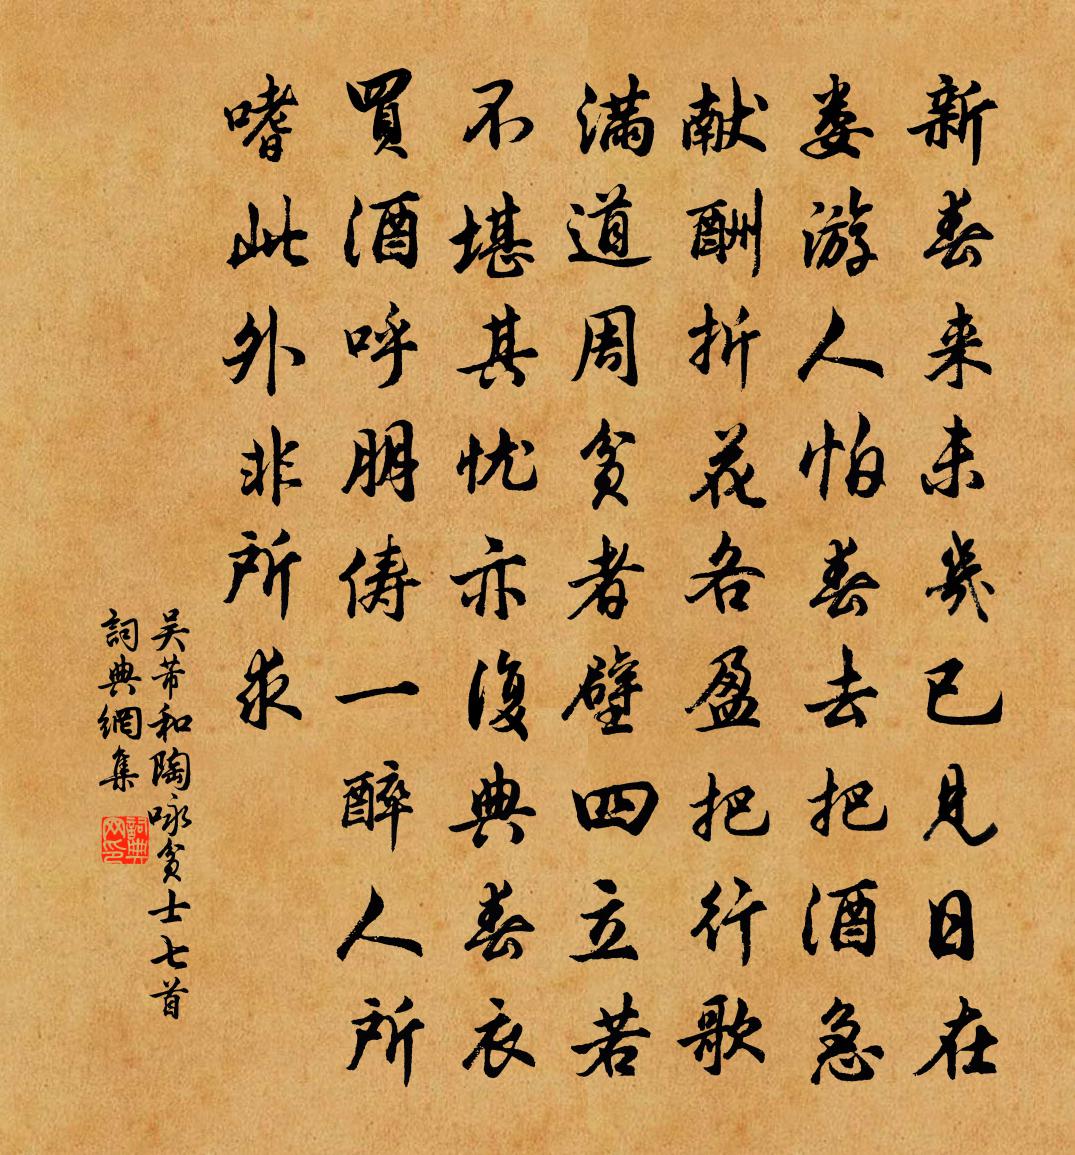 新春来未幾已見日在
娄游人怕春去把酒急
献酬折花各盈把行歌
满道周贫者壁四立若
不堪其忧亦復典春衣
買酒呼朋俦一醉人所
嗜此外非所求
吴芾和陶咏贫士七首
詞典網集
詞典网印